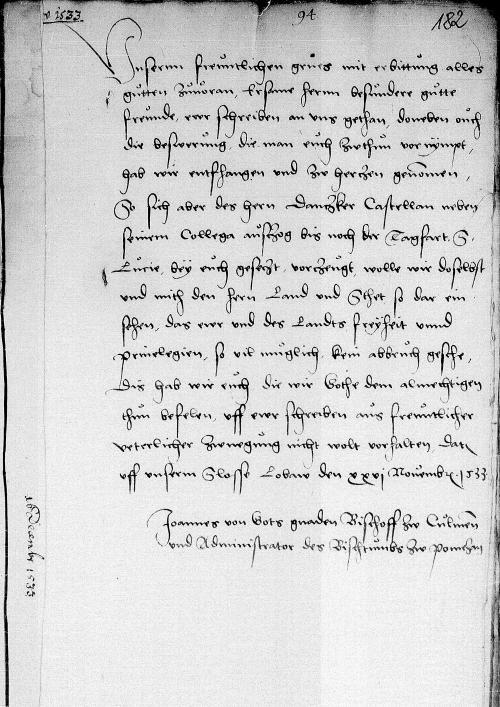 v 1533
94
182
Unserm freuntlichen grues mit erbittung alles
gutten zuuoran, Ersame hern besundere gutte
freunde, ewr schreiben an uns gethan, doneben ouch
die beswerung, die man euch zwthun vornympt,
hab wir entfhangen und zw herczen genomen,
So sich aber des hern Danczker Castellan neben
seinem Collega auszog bis noch der Tagfart, S.
Lucie, bey euch gesetzt, vorzeugt, wolle wir doselbst
und mith den hern Land und Sthet so dar ein
sehen, das ewr und des Landts freyheit unnd
privelegien, so vil muglich, kein abbruch gesche,
Das hab wir euch die wir Gothe dem almechtigen
thun befelen, uff ewr schreiben aus freuntlicher
veterlicher zwnegung nicht wolt vorhalten, Dat
uff unserm Slosse Lobaw den xxvi Novemb. 1533
Joannes von Gots gnaden Bischoff zw Culmen
und Administrator des Bischtumbs zw Pomezan
16 Decembr 1533